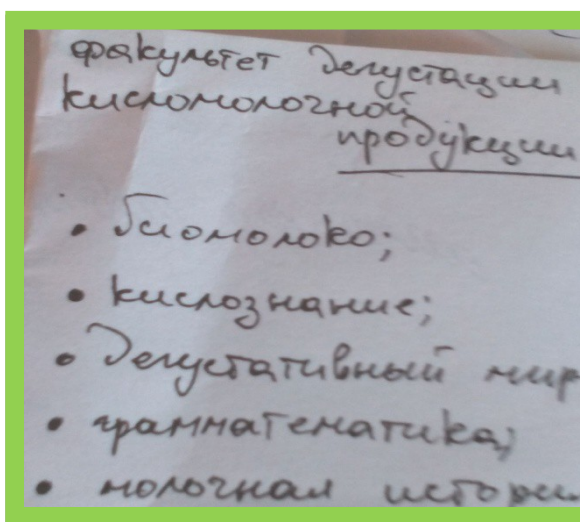 факультет дегустации
кисломолочной
продукции
• биомолоко;
• кислознание;
• дегустативный мир
• грамматематика;
• молочная истори